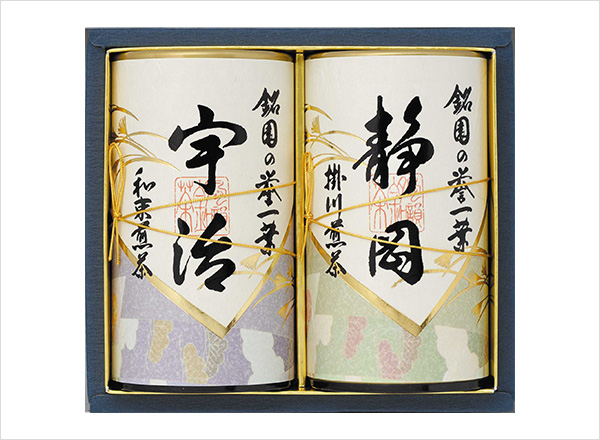 銘園の誉一葉
宇治
和束煎茶
銘園の誉一葉
静岡
掛川煎茶